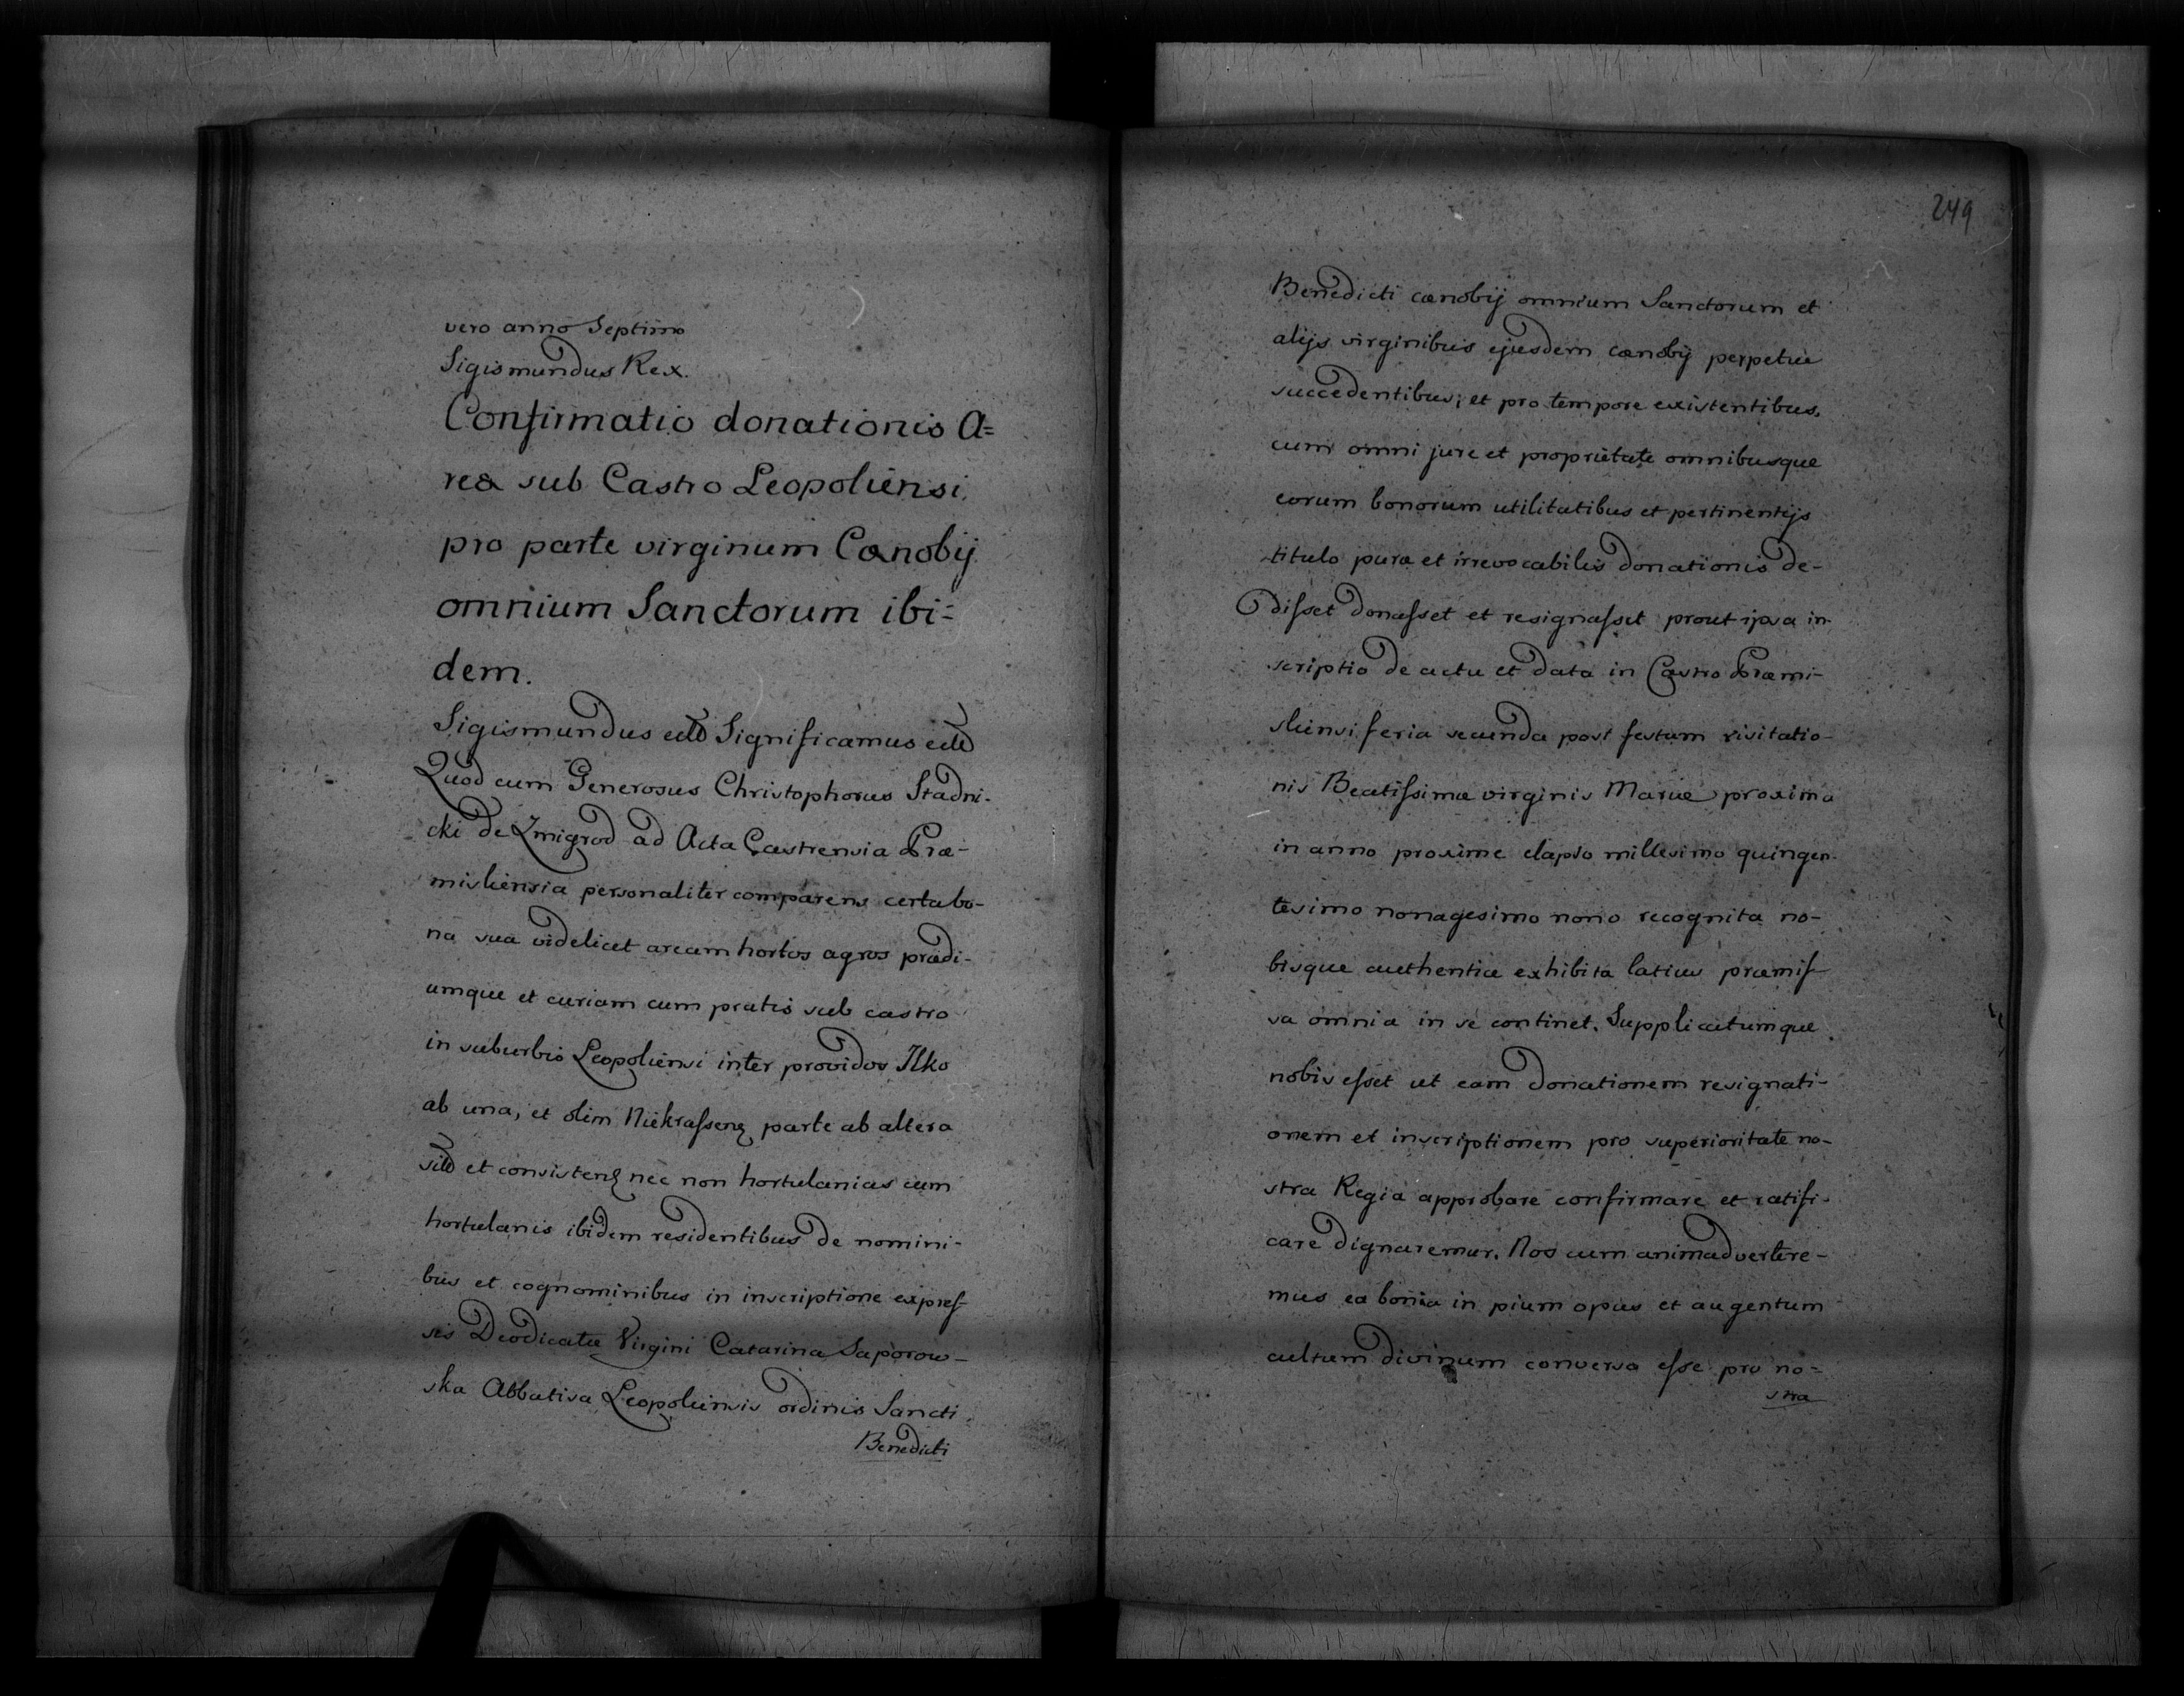 vero anno Septimo
Sigismundus Rex.
Confirmatio donationis A=
reæ sub Castro Leopoliensi
pro parte virginum Cœnobij
omnium Sanctorum ibi=
dem.
Sigismundus Significamus
Quod cum Generosus Christophorus Stadni-
cki de Zmigrod ad Acta Castrensia Præ-
misliensia personaliter comparens certa bo-
na sua videlicet aream hortos agros prædi-
umque et curiam cum pratis sub castro
in suburbio Leopoliensi inter providos Ilko
ab una, et olim parte ab altera
et nec non hortulanias cum
hortulanis ibidem residentibus de nomini-
bus et cognominibus in inscriptione expres-
sis Deodicatæ Virgini Catarina Saporow-
ska Abbatisa Leopoliensis ordinis Sancti
Benedicti
249
Benedicti cœnobij omnium Sanctorum et
alijs virginibus ejusdem cœnobij perpetue
succedentibus, et pro tempore existentibus,
cum omni jure et proprietate omnibusque
eorum bonorum utilitatibus et pertinentijs
titulo puræ et irrevocabilis donationis de-
disset donasset et resignasset prout ipsa in-
scriptio de actu et data in Castro Præmi-
sliensi feria secunda post festum visitatio-
nis Beatissimæ virginis Mariæ proxima
in anno proxime elapso millesimo quingen-
tesimo nonagesimo nono recognita no-
bisque authentice exhibita latius præmis-
sa omnia in se continet. Supplicatumque
nobis esset ut eam donationem resignati-
onem et inscriptionem pro superioritate no-
stra Regia approbare confirmare et ratifi-
care dignaremur. Nos cum animadvertere-
mus ea bonia in pium opus et augentum
cultum divinum conversa esse pro no=
stra